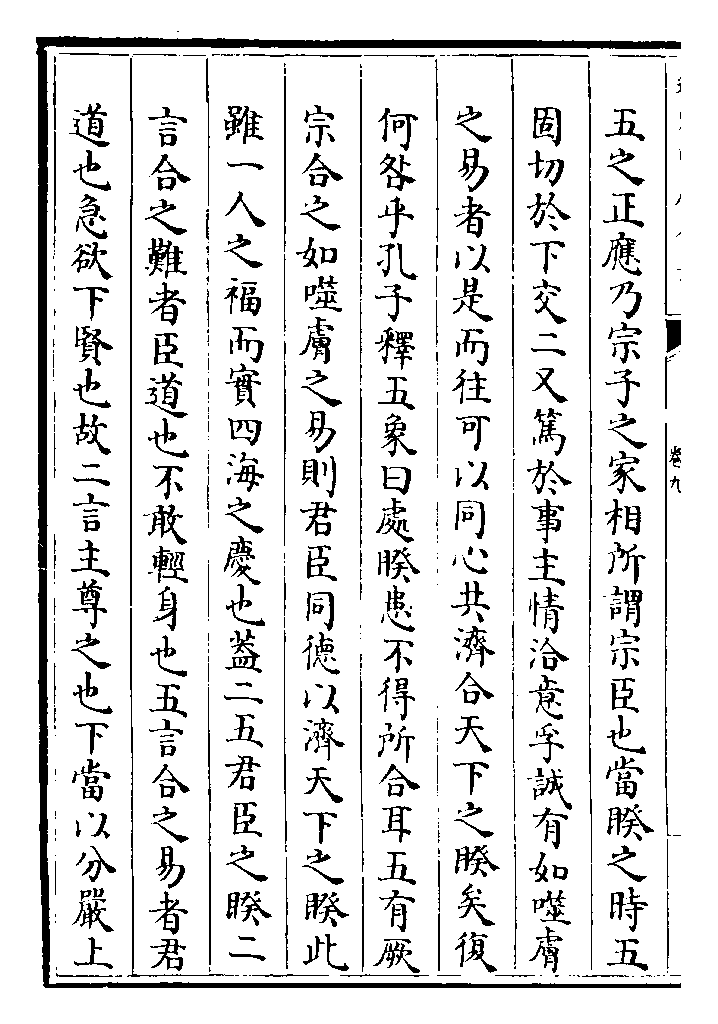 五之正應乃宗子之家相所謂宗臣也當睽之時五
固切於下交二又篤於事主情洽意孚誠有如噬膚
之易者以是而往可以同心共濟合天下之睽矣復
何咎乎孔子釋五象曰處睽患不得所合耳五有厥
宗合之如噬膚之易則君臣同德以濟天下之睽此
雖一人之福而實四海之慶也蓋二五君臣之睽二
言合之難者臣道也不敢輕身也五言合之易者君
道也急欲下賢也故二言主尊之也下當以分嚴上
卷九